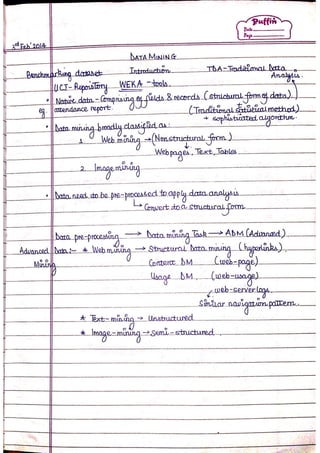 Puffin
Date
Page
3rd Feb' 2014
DATA MINING
Benchmarking dataset Introduction TDA - Traditional Data Analysis.
UCI - Repository WEKA - tools.
• Native data - Comprising of fields & records. (structural form of data)
eg attendance report. (Traditional statistical method)
→ sophisticated algorithm.
• Data mining broadly classified as:
1. Web mining → (Nonstructural form)
↓
Webpages, Text, Tables
2. Image mining
• Data need to be pre-processed to apply data analysis
↳ Convert it to a structural form
Data pre-processing → Data mining Task → ADM (Advanced)
Advanced Data :- * Web mining → Structural Data mining (hyperlinks).
Mining
Content DM (web-page)
Usage DM. (web-usage)
↙ web-server logs.
Similar navigation pattern.
* Text-mining → Unstructured
* Image-mining → Semi-structured.